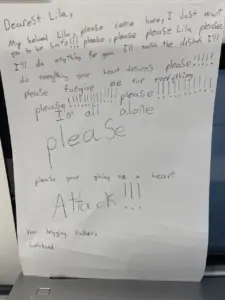 Dearest Lila,
My beloved Lila, please come home, I Just want
you to be safe!!! please, please please Lila please
I'll do anything for you I'll wash the dishes I'll
do everything your heart desires please!!!!!
please forgive me for everything
please!!!!!!!!!!! please!!!!!!!!
I'm all alone
please
please your giving me a heart
Attack!!!
Your begging husband,